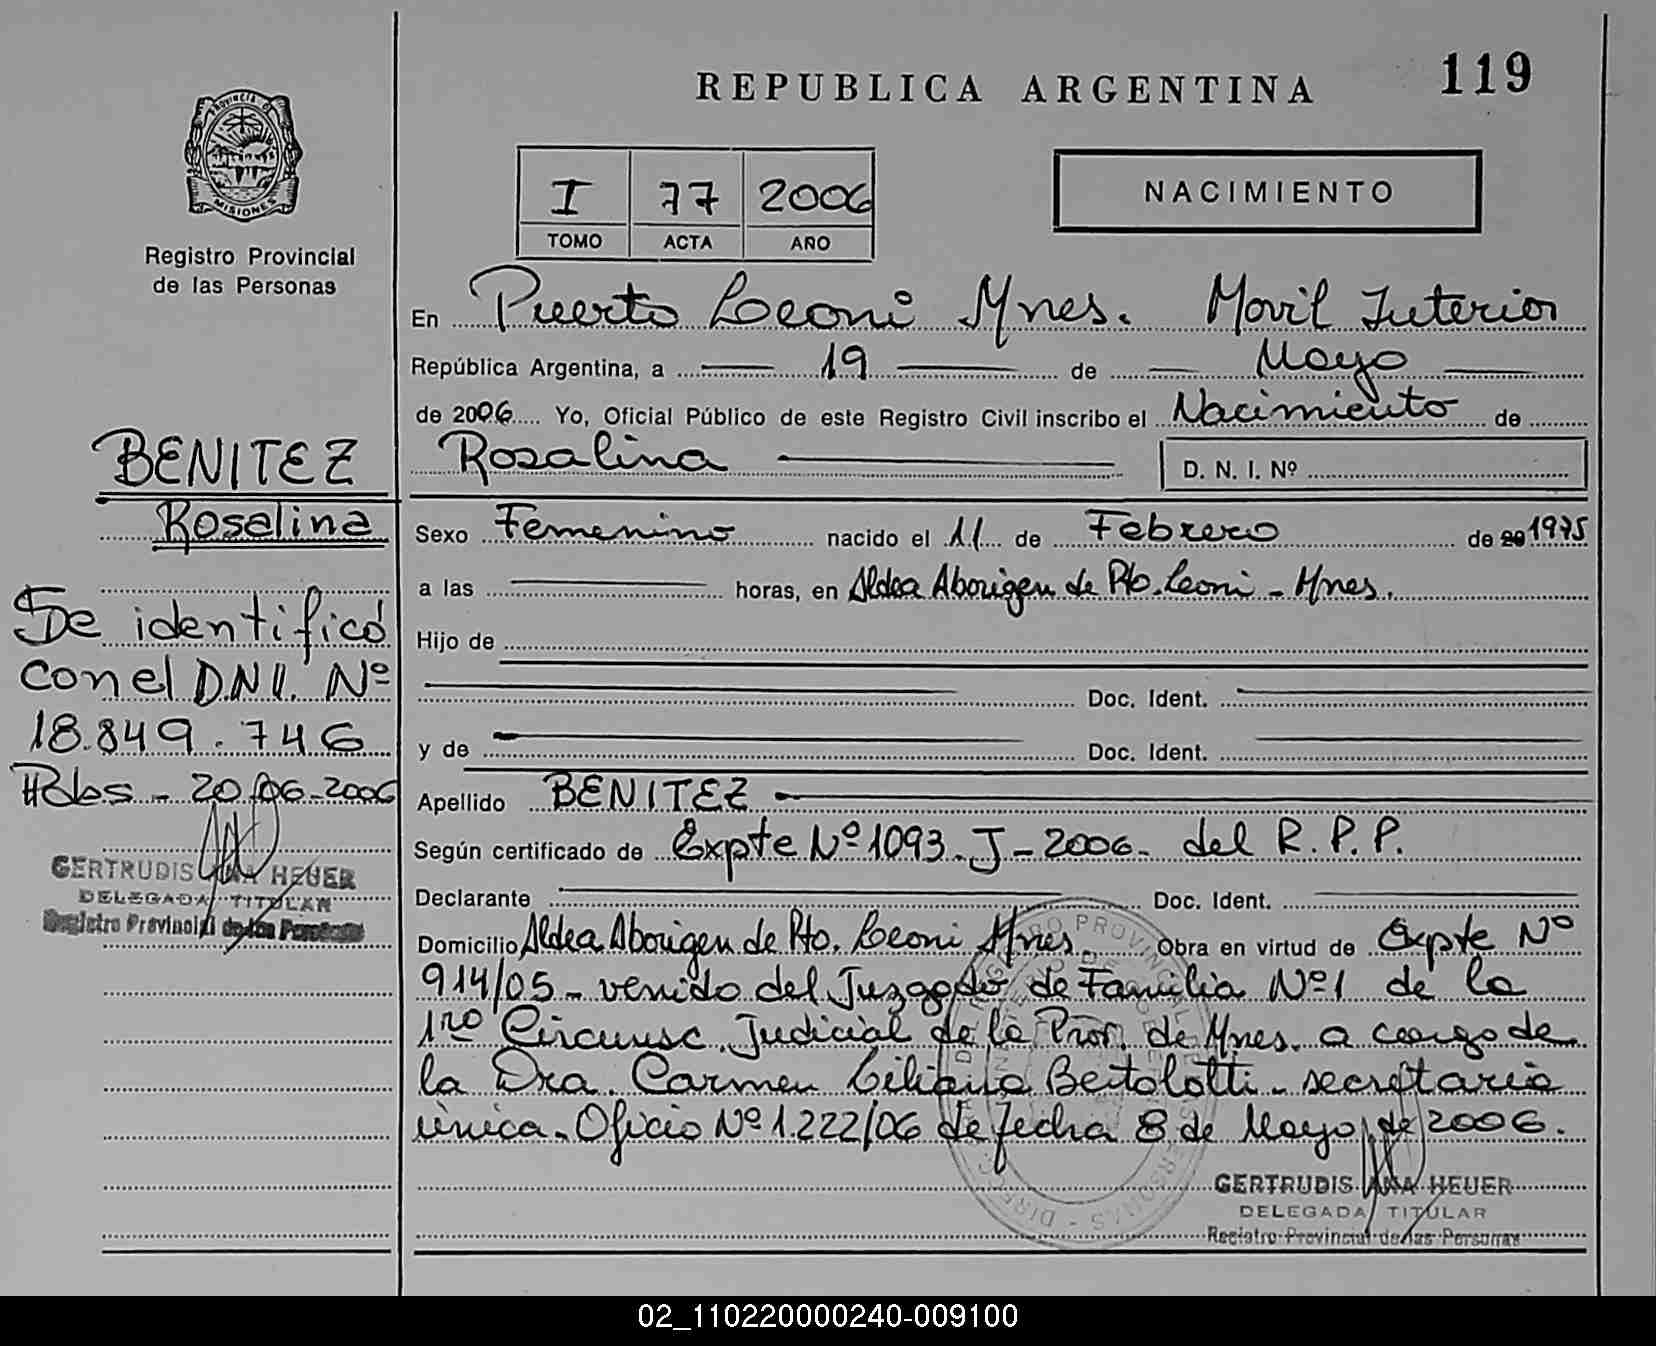 REPUBLICA ARGENTINA
119
Provincia de
MISIONES
Registro Provincial
de las Personas
I 77 2006
TOMO ACTA AÑO
NACIMIENTO
En Puerto Leoni Mnes. Movil Interior
República Argentina, a 19 de Mayo
de 2006 Yo, Oficial Público de este Registro Civil inscribo el Nacimiento de
Rosalina D. N. I. Nº
Sexo Femenino nacido el 11 de Febrero de 20 1975
a las horas, en Aldea Aborigen de Pto. Leoni - Mnes.
Hijo de
Doc. Ident.
y de Doc. Ident.
Apellido BENITEZ
Según certificado de Expte Nº 1093-J-2006- del R.P.P.
Declarante Doc. Ident.
Domicilio Aldea Aborigen de Pto. Leoni Mnes. Obra en virtud de Expte Nº
914/05 - venido del Juzgado de Familia Nº1 de la
1ra Circunsc. Judicial de la Prov. de Mnes. a cargo de
la Dra. Carmen Liliana Bertolotti - secretaria
única. Oficio Nº 1.222/06 de fecha 8 de Mayo de 2006.
GERTRUDIS ANA HEUER
DELEGADA TITULAR
Registro Provincial de las Personas
BENITEZ
Rosalina
Se identificó
con el D.N.I. Nº
18.849.746
20-06-2006
GERTRUDIS ANA HEUER
DELEGADA TITULAR
Registro Provincial de las Personas
02_110220000240-009100